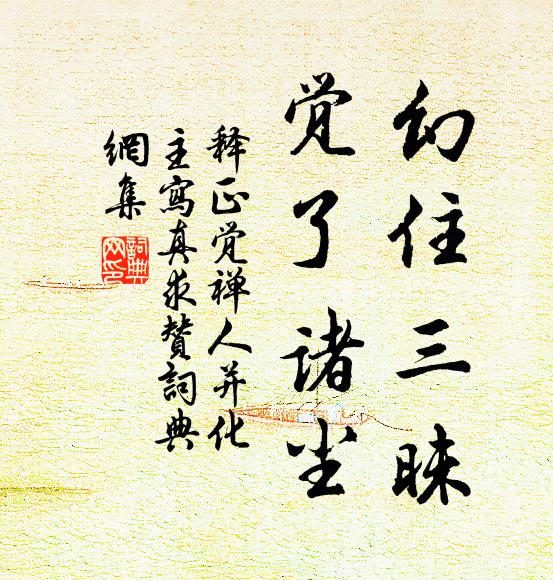 幻住三昧
觉了诸尘
释正觉禅人并化
主写真求赞词典
网集
词典
网印